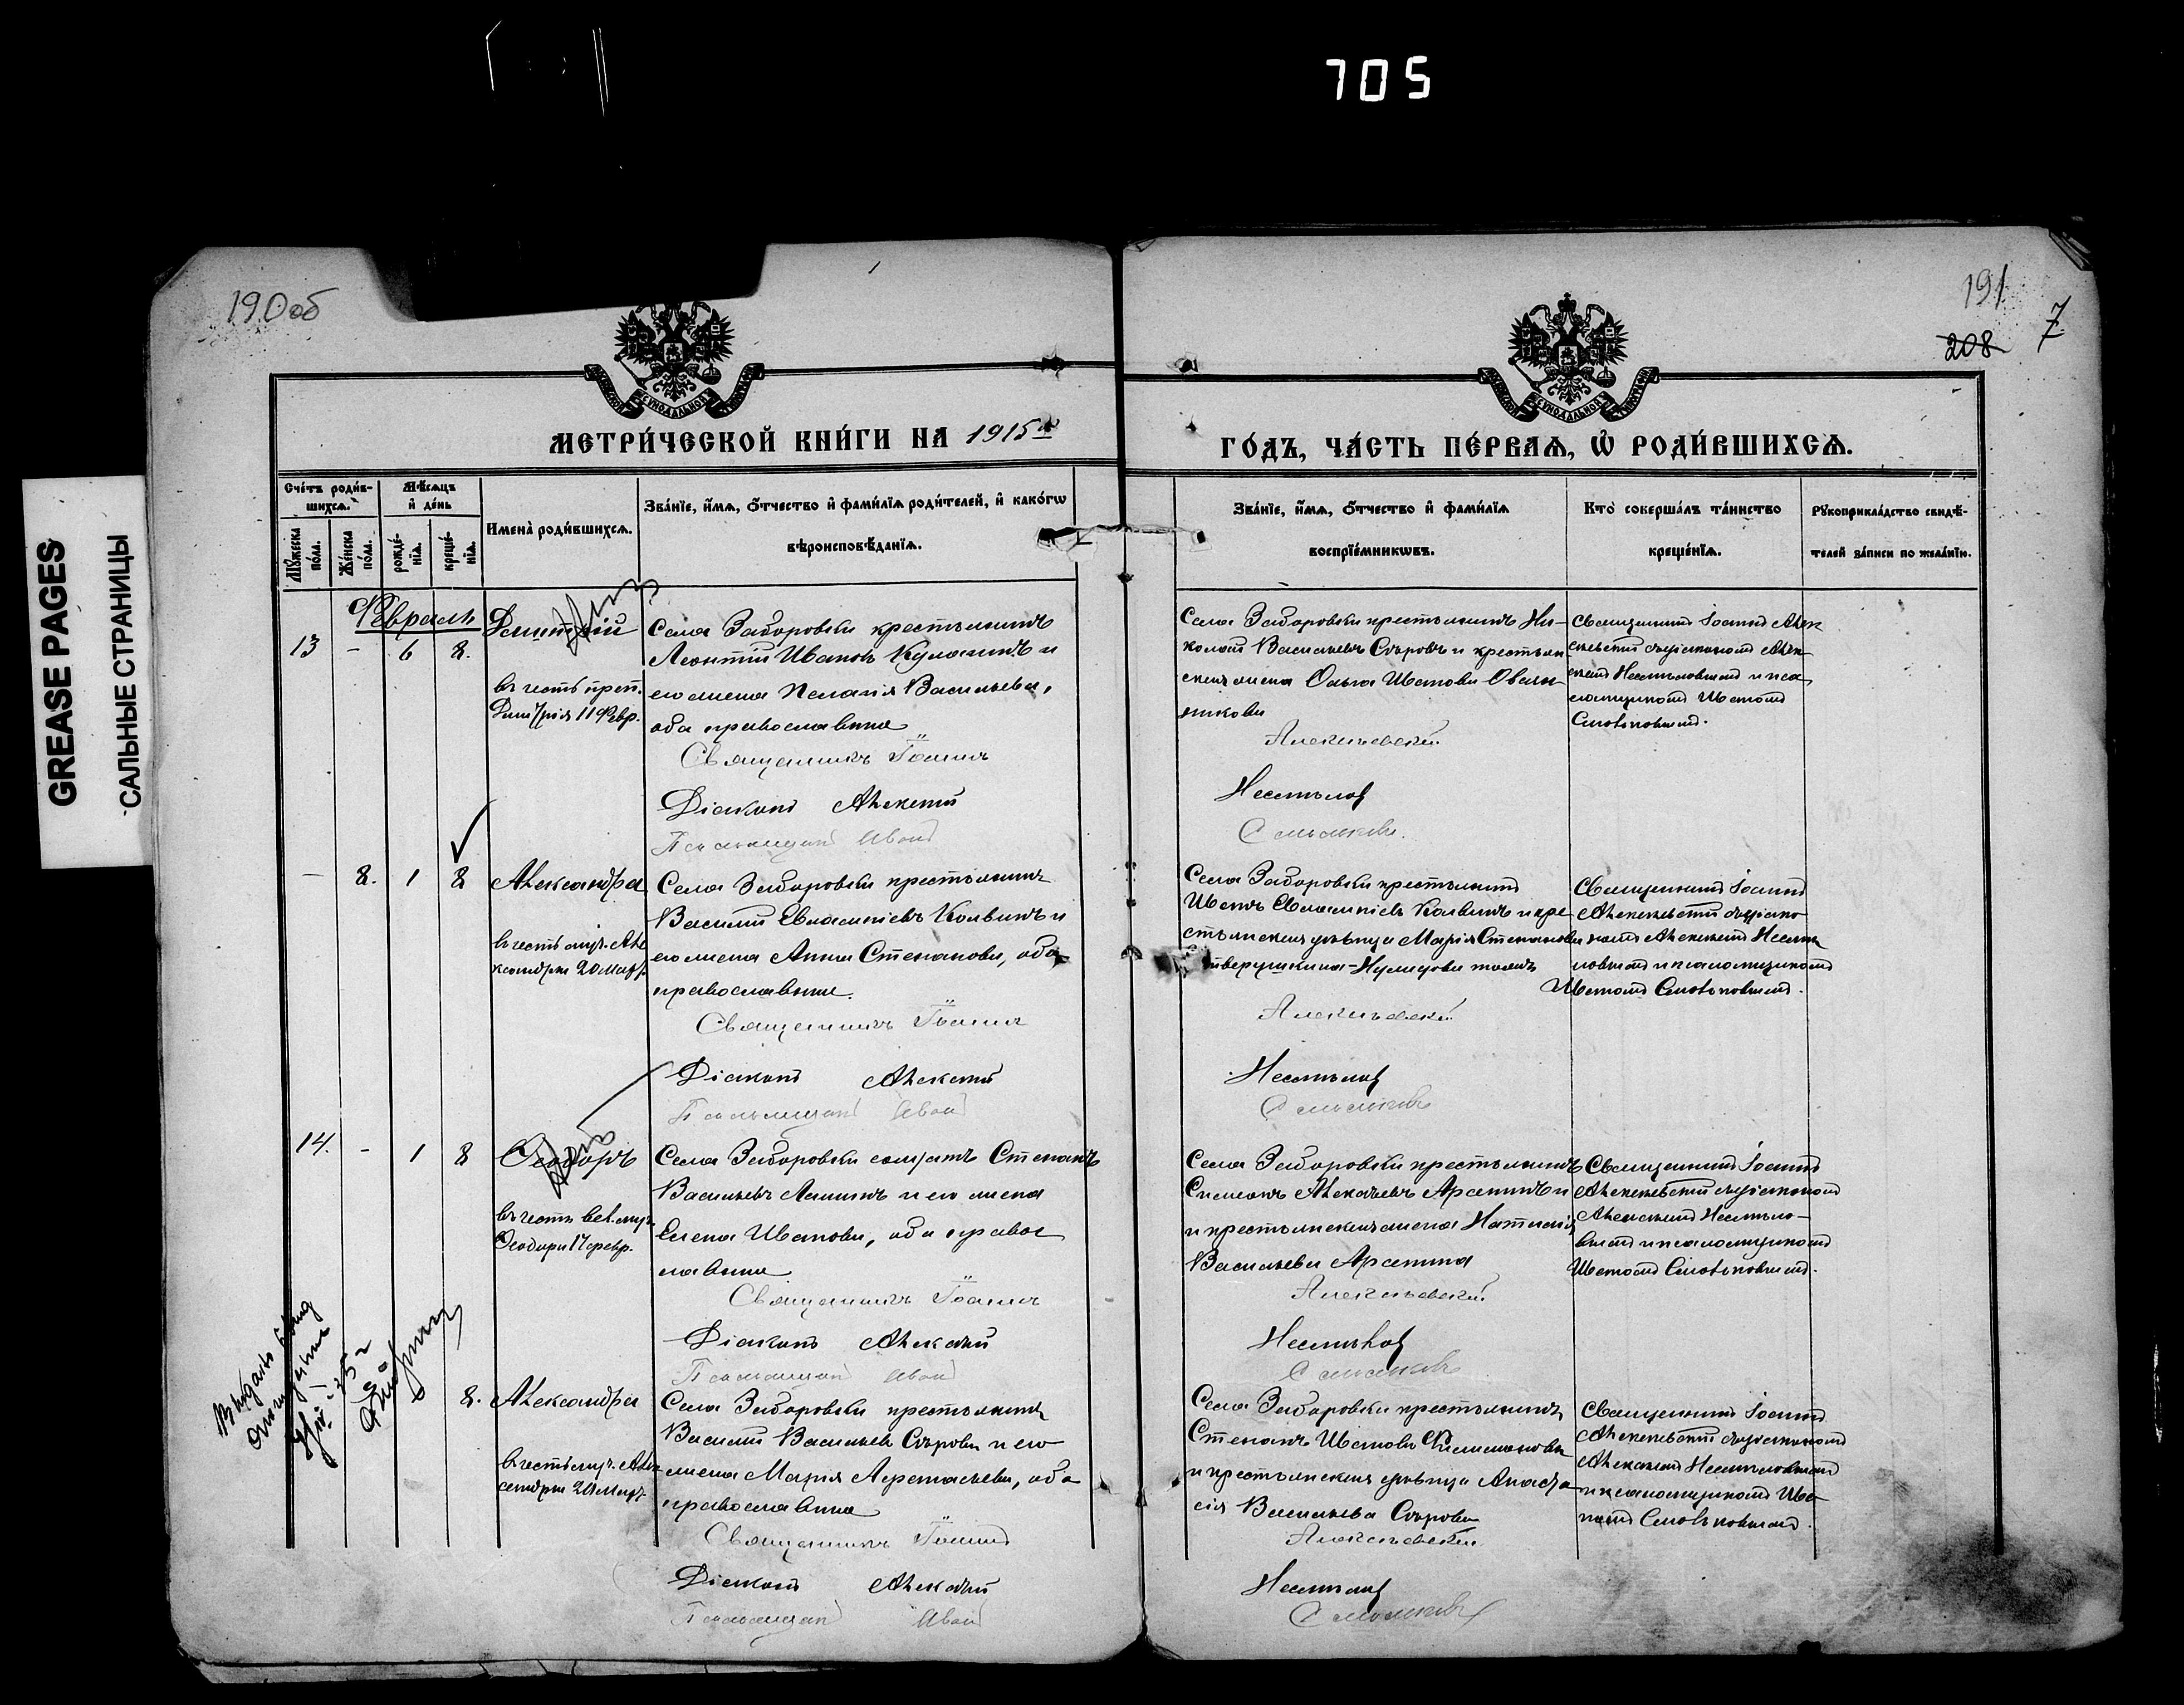 705
GREASE PAGES
САЛЬНЫЕ СТРАНИЦЫ
190об
191
208
7
МЕТРИ́ЧЕСКОЙ КНИ́ГИ НА 1915й
ГО́ДЪ, ЧА́СТЬ ПЕ́РВАѦ, Ѽ РОДИ́ВШИХСѦ.
Сче́тъ роди́в-
шихсѧ.
Мѣ́сѧцъ
и҆ де́нь
Мꙋ́жеска
по́ла.
Же́нска
по́ла.
рожде́-
нїѧ.
креще́-
нїѧ.
Имена̀ роди́вшихсѧ.
Зва́нїе, и҆́мѧ, ѻ҆́тчество и҆ фами́лїѧ роди́телей, и҆ како́гѡ
вѣроисповѣ́данїѧ.
Зва́нїе, и҆́мѧ, ѻ҆́тчество и҆ фами́лїѧ
воспрїе́мникѡвъ.
Кто̀ соверша́лъ та́инство
креще́нїѧ.
Рꙋкоприкла́дство свидѣ́-
телей за́писи по жела́нїю.
Февраль
13 - 6 8.
Димитрій
въ честь преп.
Димитрія 11 Февр.
Села Заборовки крестьянинъ
Леонтій Ивановъ Кулагинъ и
его жена Пелагія Васильева,
оба православные
Священникъ Іоаннъ
Діаконъ Алексій
Псаломщикъ Иванъ
Села Заборовки крестьянинъ Ни-
колай Васильевъ Суровъ и крестьян
ская жена Ольга Иванова Овчин-
никова
Алексѣевскій
Несмѣловъ
Смольковъ
Священникъ Іоаннъ Алек
сѣевскій съ діакономъ Алек-
сѣемъ Несмѣловымъ и пса
ломщикомъ Иваномъ
- 8. 1 8
Александра
въ честь муч. Але
ксандры 20 Март.
Села Заборовки крестьянинъ
Василій Евлампіевъ Колвинъ и
его жена Анна Степанова, оба
православные.
Священникъ Іоаннъ
Діаконъ Алексій
Псаломщикъ Иванъ
Села Заборовки крестьянинъ
Иванъ Евлампіевъ Колвинъ и кре
стьянская дѣвица Марія Степанова
Алексѣевскій
Несмѣловъ
Смольковъ
Священникъ Іоаннъ
Алексѣевскій съ діако-
номъ Алексѣемъ Несмѣ
ловымъ и псаломщикомъ
Иваномъ
14. - 1 8
Ѳеодоръ
въ честь вел. муч.
Ѳеодора 17 февр.
Села Заборовки солдатъ Степанъ
Васильевъ Лашинъ и его жена
Елена Иванова, оба правос
лавные
Священникъ Іоаннъ
Діаконъ Алексѣй
Псаломщикъ Иванъ
Села Заборовки крестьянинъ
Симеонъ Алексѣевъ Арсенинъ и
и крестьянская жена Наталія
Васильева Арсенина
Алексѣевскій
Несмѣловъ
Смольковъ
Священникъ Іоаннъ
Алексѣевскій съ діакономъ
Алексѣемъ Несмѣло-
вымъ и псаломщикомъ
Иваномъ
8.
Александра
въ честь муч. Алек
сандры 20 Март.
Села Заборовки крестьянинъ
Василій Васильевъ Суровъ и его
жена Марія Лаврентьева, оба
православные
Священникъ Іоаннъ
Діаконъ Алексѣй
Псаломщикъ Иванъ
Села Заборовки крестьянинъ
Степанъ Ивановъ
и крестьянская дѣвица Анаста
сія Васильева Сурова
Алексѣевскій
Несмѣловъ
Смольковъ
Священникъ Іоаннъ
Алексѣевскій съ діакономъ
Алексѣемъ Несмѣловымъ
и псаломщикомъ Ива
номъ